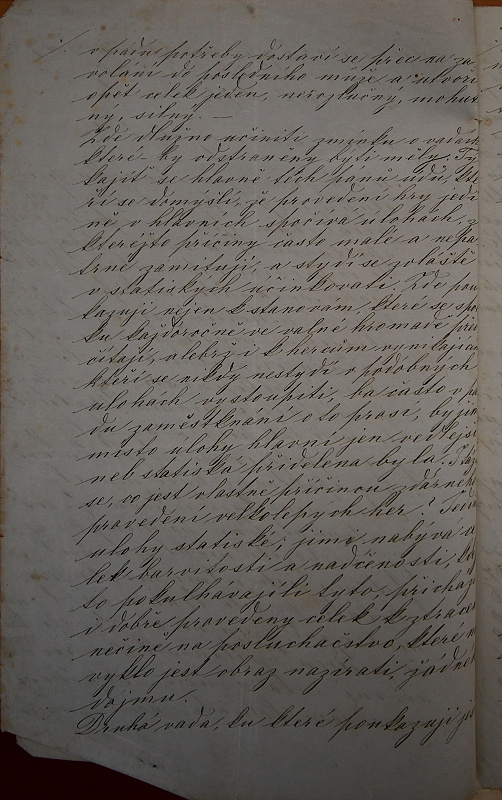 v pádu potřeby dostaví se přec na za-
volání do posledního muže a utvoří
opět celek jeden, nerozlučný, mohut-
ný, silný. —
Zde slušno učiniti zmínku o vadách
které-by odstraněny býti měly. Tý-
kajíť se hlavně těch pánů údů, kte-
ří se domýšlí, že provedení hry jedi-
ně v hlavních spočívá úlohách, z
kteréjžto příčiny často malé a nepa-
trné zamítují, a stydí se zvláště
v statických účinkovati. Zde pou-
kazuji nejen k stanovám, které se spol-
ku každoročně ve valné hromadě před-
čítají, alebrž i k hercům vynikajícím
kteří se nikdy nestydí v podobných
úlohách vystoupiti, ba často v pá-
du zaměstknání o to prosí, by jim
místo úlohy hlavní jen vedlejší
neb statistká přidělena byla. Táži
se, co jest vlastně příčinou zdárného
provedení velkolepých her?
úlohy statiské; jimi nabývá ce-
lek barvitosti a nadšenosti,
to pokulhavajíli tyto, přichází
i dobře provedený celek k ztracení
nečině na posluchačstvo, které
vyklo jest obraz nazírati, žádného
dojmu.
Druhá vada, ku které poukazuji jest